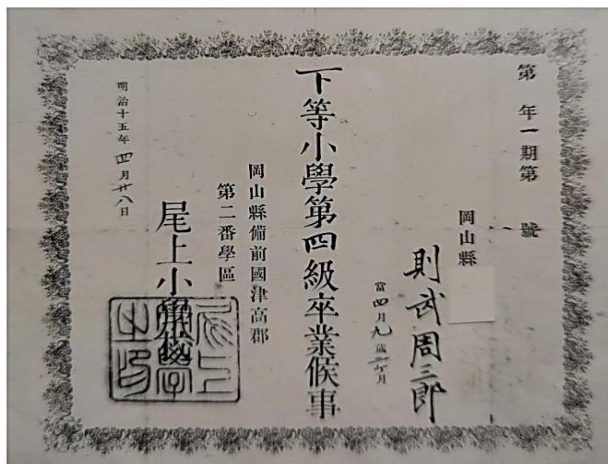 第 年一期第 號
岡山縣
則武周三郎
當四月九歳ヶ月
下等小學第四級卒業候事
岡山縣備前國津高郡
第二番學區
尾上小學校
尾上小學之印
明治十五年四月廿八日